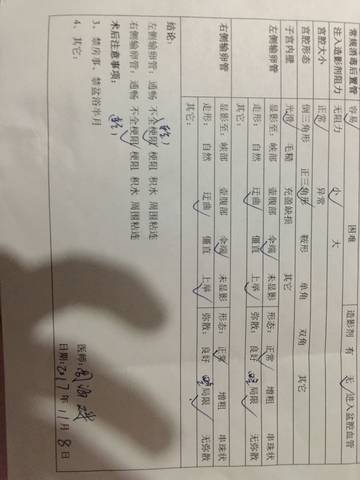 常规消毒后置管 容易 困难
注入造影剂阻力 无阻力 小 大 造影剂 有 无 进入盆腔血管
宫腔大小 正常 异常
宫腔形态 倒三角形 正三角形 鞍形 单角 双角 其它
子宫内壁 光滑 毛糙 充盈缺损 其它
左侧输卵管 显影至：峡部 壶腹部 伞端 未显影 形态：正常 增粗 串珠状
走形：自然 迂曲 僵直 上举 弥散：良好 局限 无弥散
其它：
右侧输卵管 显影至：峡部 壶腹部 伞端 未显影 形态：正常 增粗 串珠状
走形：自然 迂曲 僵直 上举 弥散：良好 局限 无弥散
其它：
结论：
左侧输卵管：通畅 不全梗阻 梗阻 积水 周围粘连
右侧输卵管：通畅 不全梗阻 梗阻 积水 周围粘连
术后注意事项：
3、禁房事、禁盆浴半月
4、其它：
医师：
日期：2017年11月8日